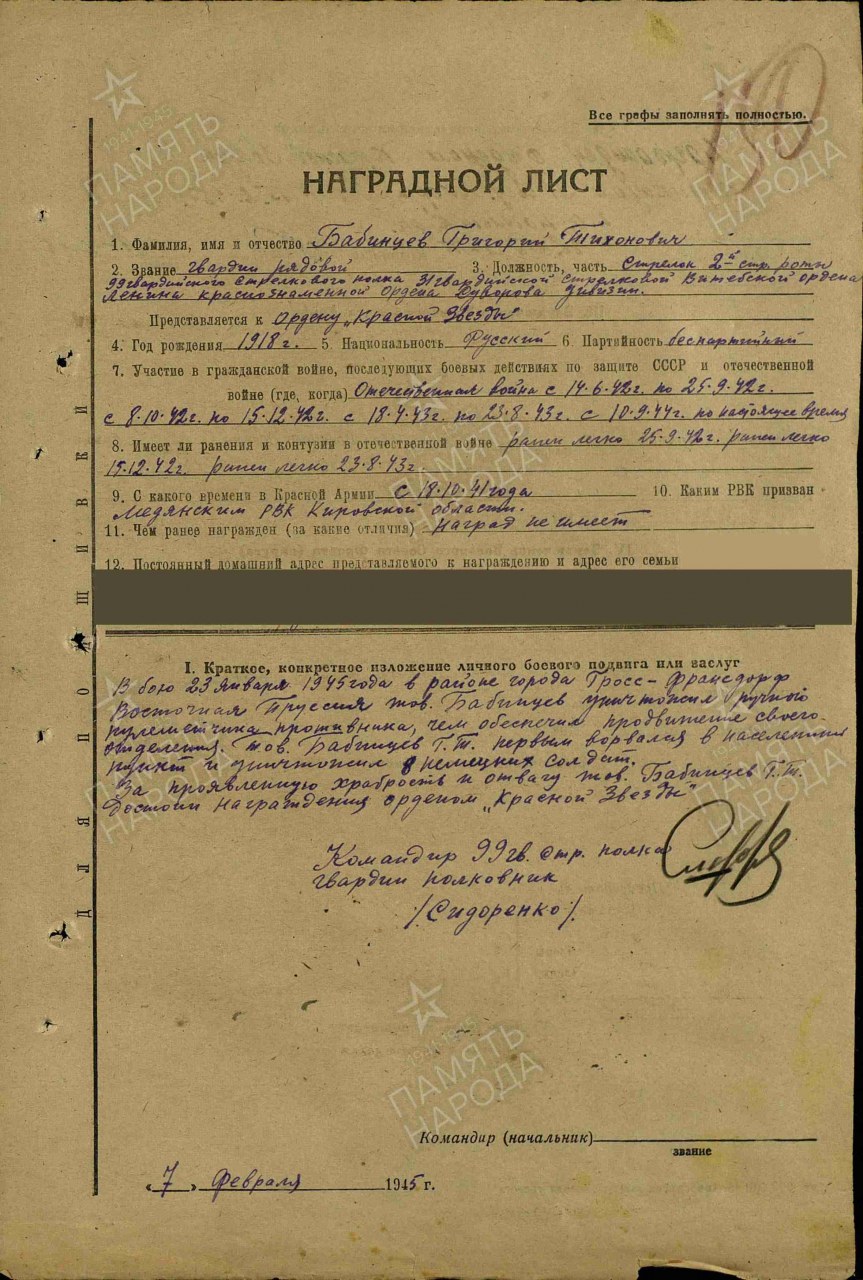 190
Все графы заполнять полностью.
НАГРАДНОЙ ЛИСТ
1. Фамилия, имя и отчество Бабинцев Григорий Тихонович
2. Звание гвардии рядовой 3. Должность, часть стрелок 2й стр. роты
99 гвардейского стрелкового полка 31 гвардейской стрелковой Витебской ордена
Ленина краснознаменной ордена Суворова дивизии.
Представляется к Ордену „Красной Звезды"
4. Год рождения 1918 г. 5. Национальность Русский 6. Партийность беспартийный
7. Участие в гражданской войне, последующих боевых действиях по защите СССР и отечественной
войне (где, когда) Отечественная война с 14.6.42г. по 25.9.42г.
с 8.10.42г. по 15.12.42г. с 18.4.43г. по 23.8.43г. с 10.9.44г. по настоящее время
8. Имеет ли ранения и контузии в отечественной войне ранен легко 25.9.42г. ранен легко
15.12.42г. ранен легко 23.8.43г.
9. С какого времени в Красной Армии с 18.10.41 года 10. Каким РВК призван
Медянским РВК Кировской области.
11. Чем ранее награжден (за какие отличия) Наград не имеет
12. Постоянный домашний адрес представляемого к награждению и адрес его семьи
I. Краткое, конкретное изложение личного боевого подвига или заслуг
В бою 23 января 1945 года в районе города Гросс-Франсдорф
Восточная Пруссия тов. Бабинцев уничтожил ручного
пулеметчика противника, чем обеспечил продвижение своего
отделения. Тов. Бабинцев Г.Т. первым ворвался в населенный
пункт и уничтожил 8 немецких солдат.
За проявленную храбрость и отвагу тов. Бабинцев Г.Т.
Достоин награждения орденом „Красной Звезды"
Командир 99 гв. стр. полка
гвардии полковник
/Сидоренко/.
Командир (начальник)
звание
„7" Февраля 1945 г.
ДЛЯ ПОДШИВКИ
1941-1945
ПАМЯТЬ
НАРОДА
1941-1945
ПАМЯТЬ
НАРОДА
ПАМЯТЬ
НАРОДА
ПАМЯТЬ
НАРОДА
ПАМЯТЬ
НАРОДА
1941-1945
ПАМЯТЬ
НАРОДА